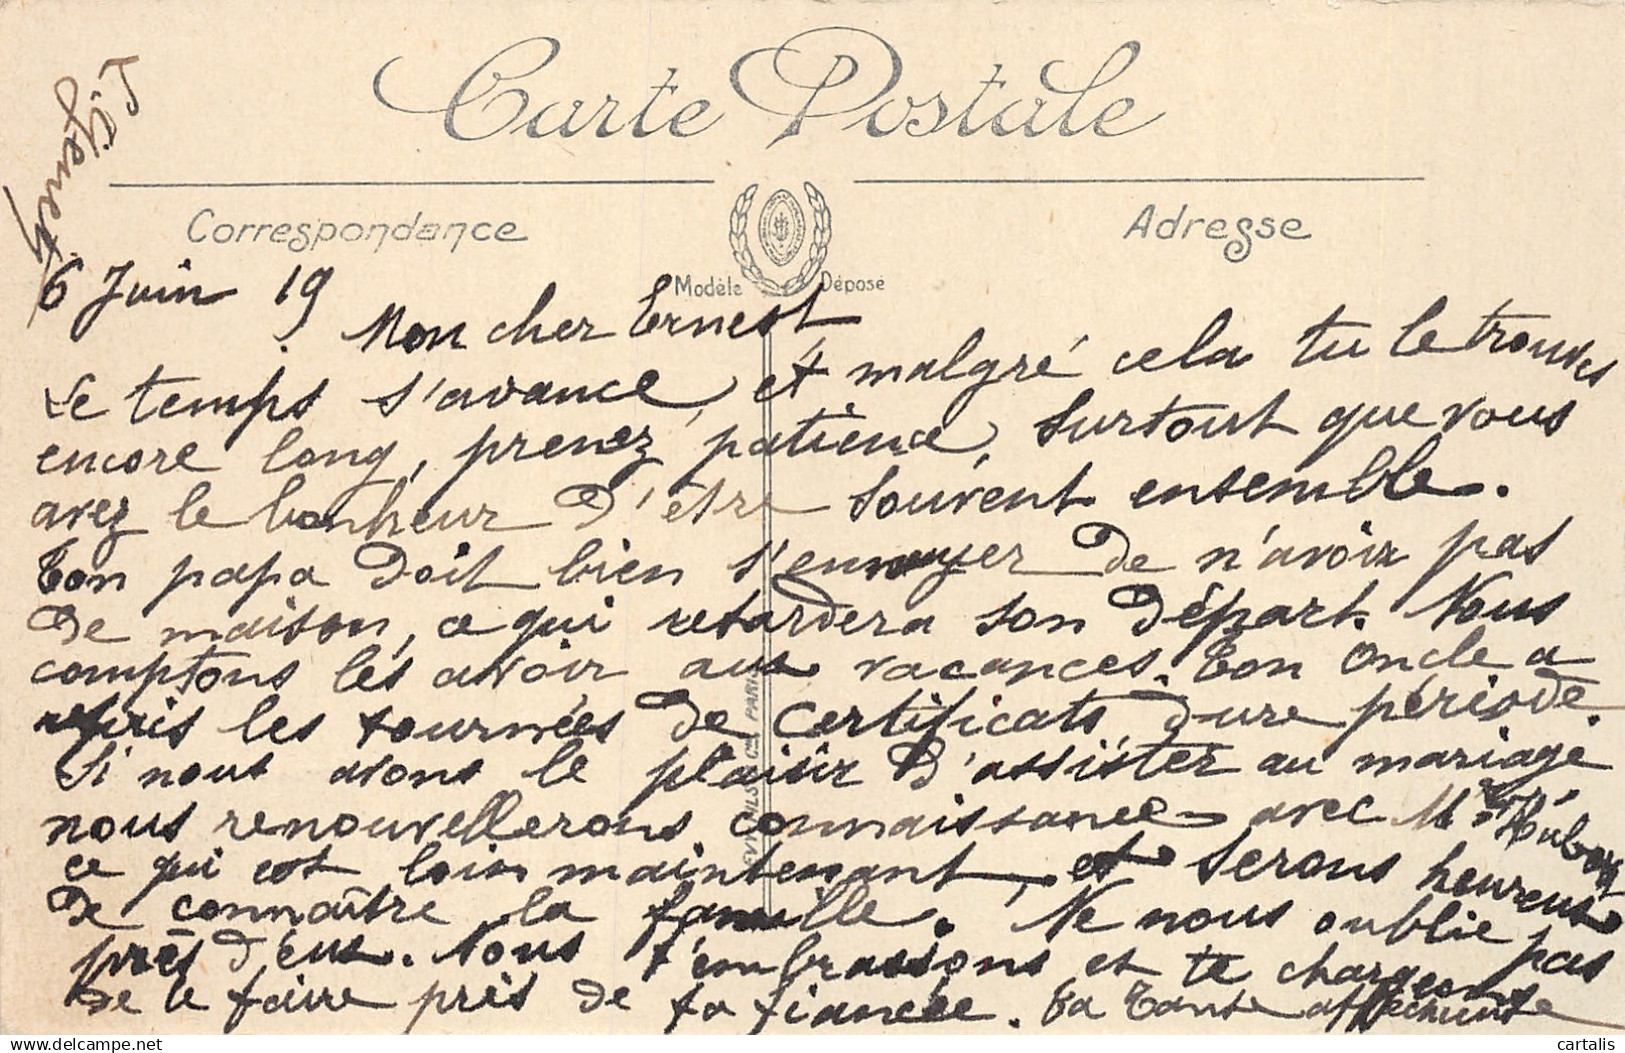 Carte Postale
Correspondance
Adresse
Modèle Déposé
6 Juin 19
Mon cher Ernest
Le temps s'avance, et malgré cela tu le trouves
encore long, prenez patience, surtout que vous
avez le bonheur d'être souvent ensemble.
Ton papa doit bien s'ennuyer de n'avoir pas
de maison, ce qui retardera son départ. Nous
comptons les avoir aux vacances. Ton Oncle a
repris les tournées de Certificats, dure période.
Si nous avons le plaisir d'assister au mariage
nous renouvellerons connaissance avec Mr
ce qui est loin maintenant, et serons heureux
de connaître la famille. Ne nous oublie pas
près d'eux. Nous t'embrassons et te chargeons
de le faire près de ta fiancée. Ta Tante affectionnée
PARIS
cartalis